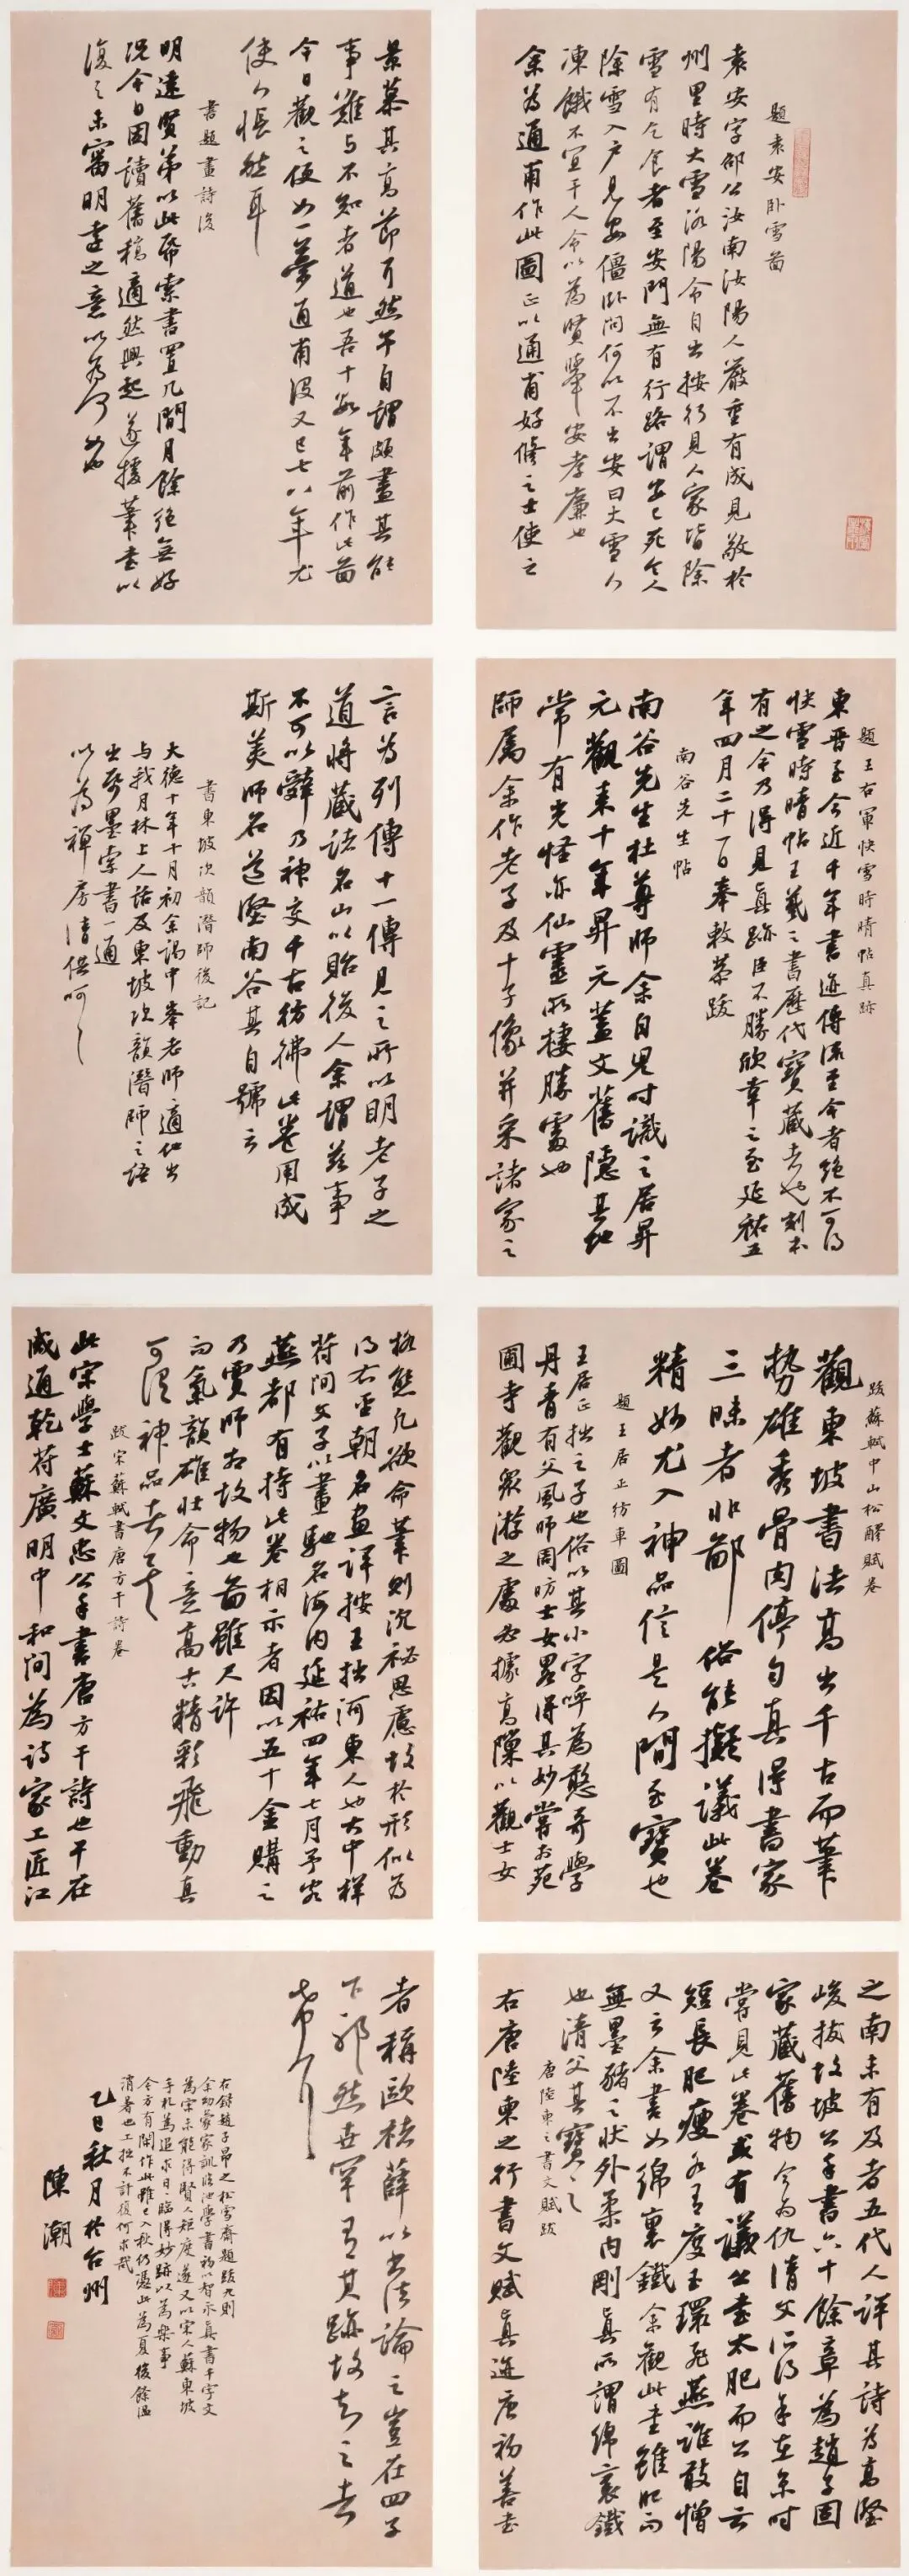 題袁安卧雪畣
袁安字邵公汝南汝陽人嚴重有威見敬於
州里時大雪洛陽令自出按行見人家皆除
雪有乞食者至安門無有行路謂安已死令人
除雪入户見安僵卧問何以不出安曰大雪人
凍餓不宜干人令以為賢舉安孝廉也
余為通甫作此圖正以通甫好脩之士使之
景慕其高節可然乎自謂頗盡其能
事難与不知者道也吾十數年前作此畣
今日觀之便如一夢通甫沒又已七八年尤
使人悵然耳
書題畫詩後
明遠賢弟以此帋索書置几間月餘絕無好
況今日因讀舊稿適然興起遂援筆書以
復之未審明遠之意以為何如也
題王右軍快雪時晴帖真跡
東晉至今近千年書迹傳流至今者絕不可得
快雪時晴帖王羲之書歷代寶藏者也刻本
有之今乃得見真跡臣不勝欣幸之至延祐五
年四月二十一日奉敕恭跋
南谷先生帖
南谷先生杜尊師余自兒時識之居昇
元觀来十年昇元蓋文舊隱其地
常有光怪亦仙靈所棲勝處也
師屬余作老子及十子像并采諸家之
言為列傳十一傳見之所以明老子之
道將藏諸名山以貽後人余謂茲事
不可以辤乃神交千古彷彿此卷用成
斯美師名道堅南谷其自號云
書東坡次韻潛師後記
大德十年十月初余謁中峯老師適他出
与我月林上人話及東坡次韻潛師之語
出帋墨索書一通
以為禪房清供呵呵
跋蘇軾中山松醪賦卷
觀東坡書法高出千古而筆
勢雄秀骨肉停勻真得書家
三昧者非鄙俗能擬議此卷
精妙尤入神品信是人間至寶也
題王居正紡車圖
王居正拙之子也俗以其小字呼為憨哥學
丹青有父風師周昉士女畧得其妙嘗於苑
圃寺觀眾游之處必據高隙以觀士女
格態凡欲命筆則沉祕思慮故於形似為
得右吾朝名畫評按王拙河東人也大中祥
符間父子以畫馳名海内延祐四年七月予客
燕都有持此卷相示者因以五十金購之
乃賈師古故物也畣雖尺許
而氣韻雄壮命意高古精彩飛動真
可謂神品者矣
跋宋蘇軾書唐方干詩卷
此宋學士蘇文忠公手書唐方干詩也干在
咸通乾符廣明中和間為詩家工匠江
之南未有及者五代人評其詩為高堅
峻拔故坡公手書六十餘章為趙子固
家藏舊物今為仇清父所得余在京時
嘗見此卷或有議公書太肥而公自云
短長肥瘦各有度玉環飛燕誰敢憎
又云余書如綿裏鐵余觀此書雖肥而
無墨豬之状外柔内剛真所謂綿裏鐵
也清父其寶之
唐陸柬之書文賦跋
右唐陸柬之行書文賦真迹唐初善書
者稱歐褚薛以書法論之豈在四子
下邪然世罕有其跡故知之者
希耳
右録趙子昂之松雪齋題跋九則
余幼蒙家訓臨池學書初以智永真書千字文
為宗未能得賢人矩度遂又以宋人蘇東坡
手札為追求目臨得妙跡以為樂事
今方有閑作此雖已入秋仍憑此為夏後餘温
消暑也工拙不計復何求哉
乙巳秋月於台州
陳潮